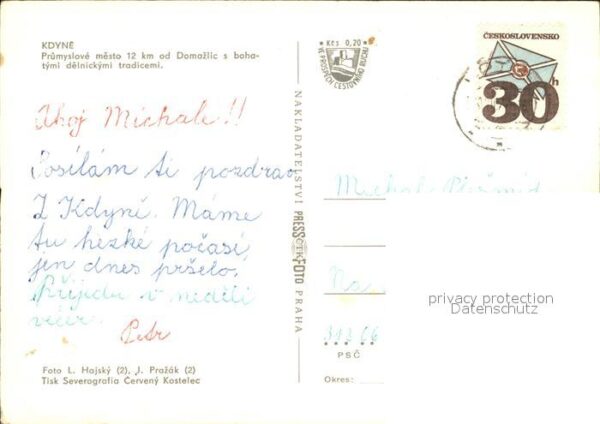 KDYNĚ
Průmyslové město 12 km od Domažlic s boha-
tými dělnickými tradicemi.
Ahoj Michale!!
Posílám ti pozdrav
Z Kdyně. Máme
tu hezké počasí,
jen dnes pršelo.
Přijedu v neděli
večer.
Petr
Foto L. Hajský (2), J. Pražák (2)
Tisk Severografia Červený Kostelec
NAKLADATELSTVÍ PRESSFOTO PRAHA
ČTK
Kčs 0,20
VE PROSPĚCH CESTOVNÍHO RUCHU
ČESKOSLOVENSKO
30 h
Michal
Na
PSČ
Okres:
privacy protection
Datenschutz